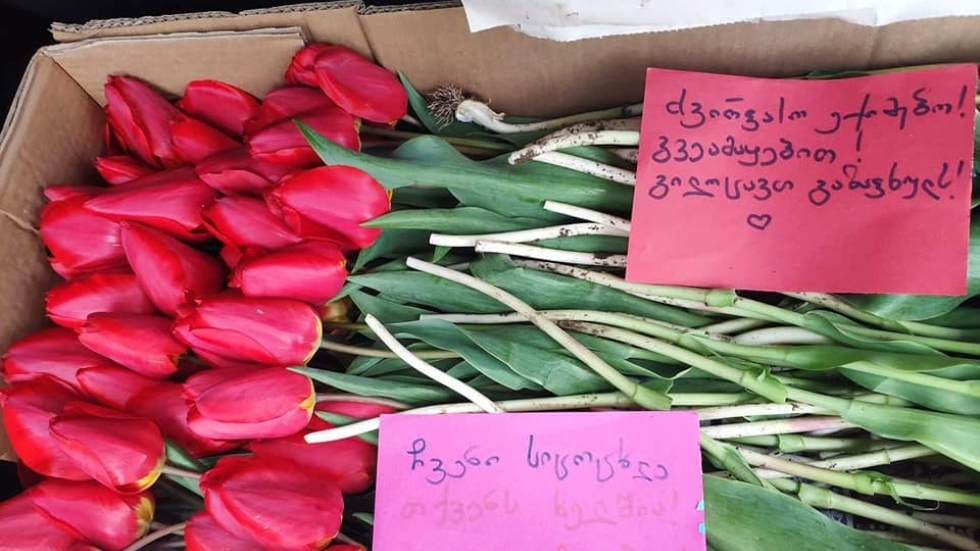 ძვირფასო ექიმებო!
გვეამაყებით!
გილოცავთ გაზაფხულს!
ჩვენი სიცოცხლე
თქვენს ხელშია!